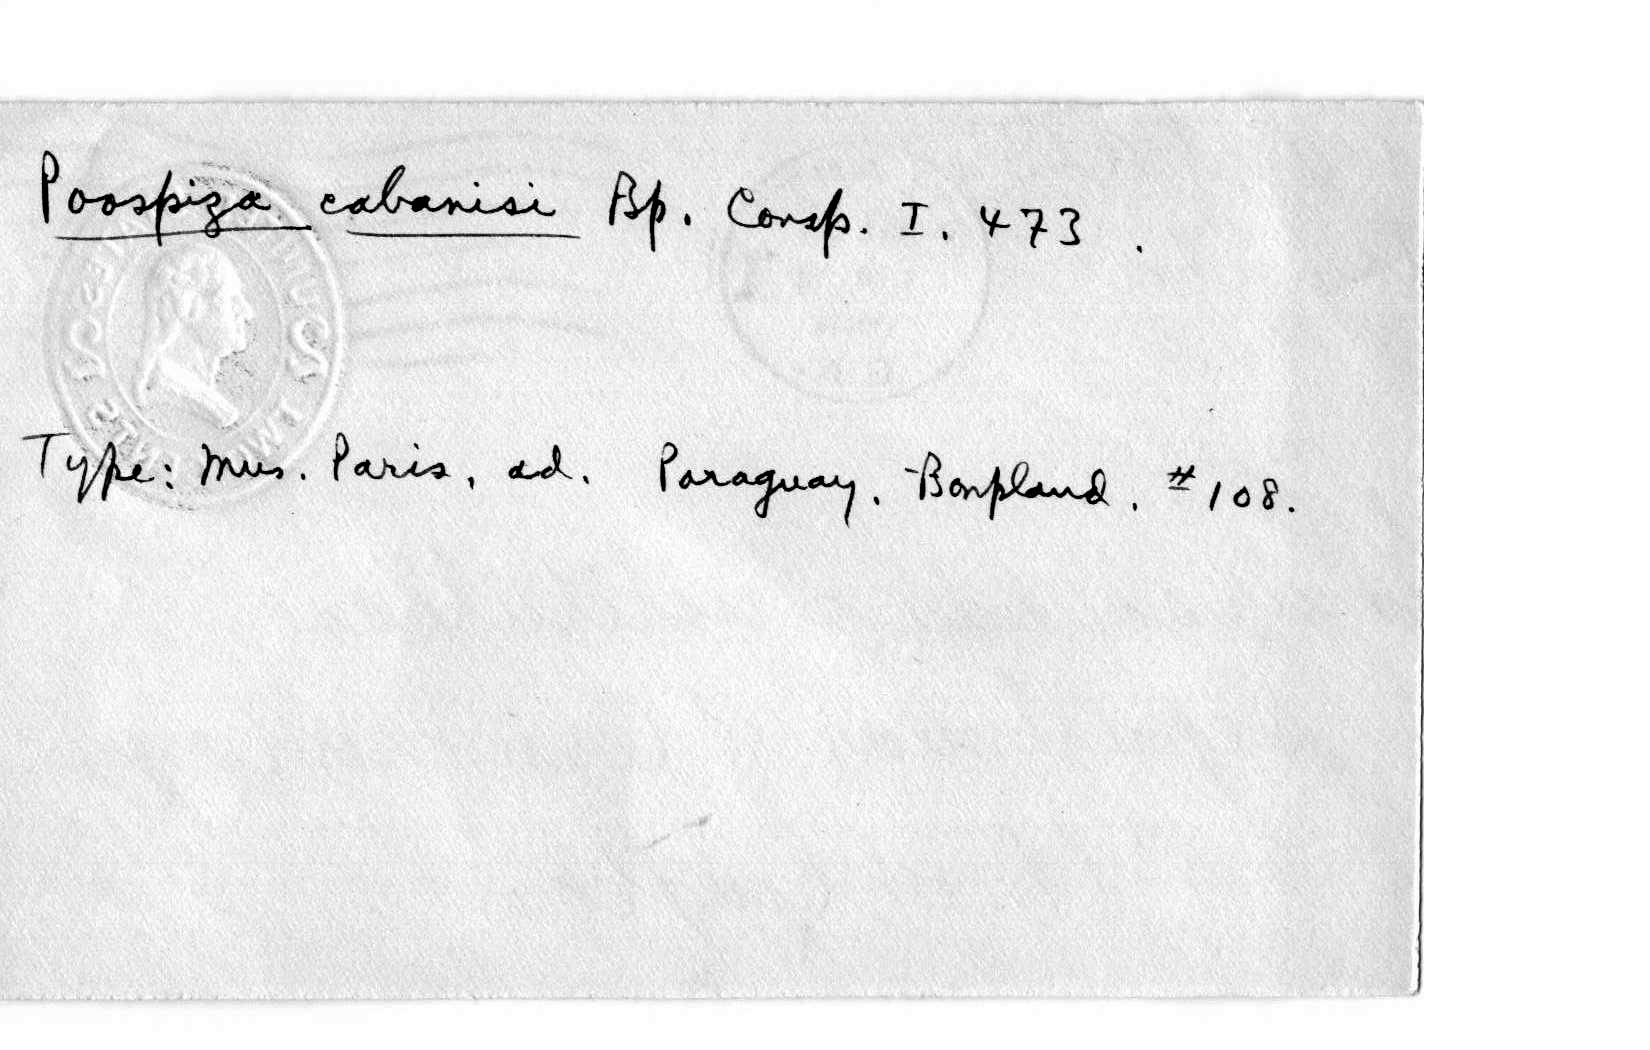 Poospiza cabanisi Bp. Consp. I. 473.
Type: Mus. Paris, ad. Paraguay. Bonpland. #108.